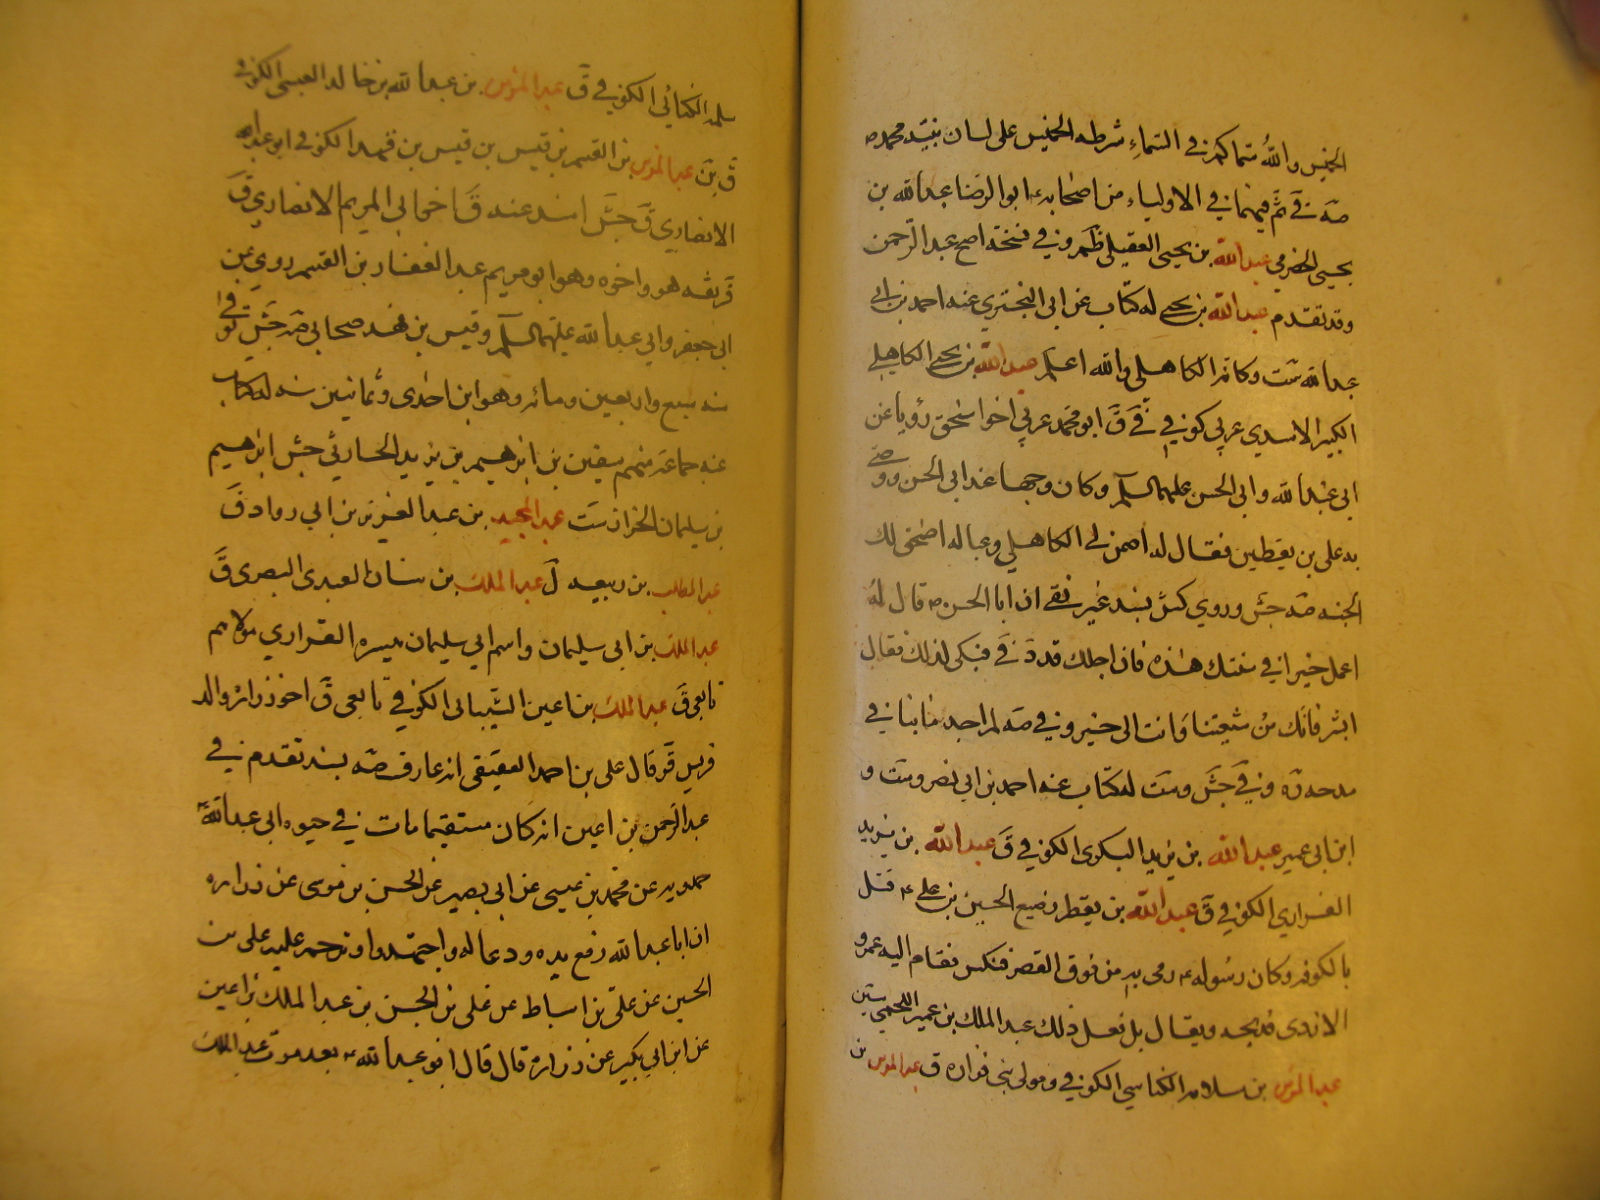 الخميس والله سماكم في السماء شرطه الخميس على لسان نبيه محمد ص
صه في قم فيهما في الاولياء من اصحابه ع ابو الرضا عبدالله بن
يحيى الحضرمي عبدالله بن يحيى العقيلي ظم وفي نسخة اصح عبد الرحمن
وقد تقدم عبدالله بن يحيى له كتاب عن ابي البختري عنه احمد بن ابي
عبدالله ست وكانه الكاهلي والله اعلم عبدالله بن يحيى الكاهلي
الكبير الاسدي عربي كوفي في ق ق ابو محمد عربي اخو اسحق رويا عن
ابي عبدالله وابي الحسن عليهما السلم وكان وجها عند ابي الحسن ووصى
به علي بن يقطين فقال له اضمن لي الكاهلي وعياله اضمن لك
الجنه صه جش وروي كش بسند غير نقي ان ابا الحسن ع قال له
اعمل خيرا في سنتك هذه فان اجلك قد دنى فبكى لذلك فقال
ابشر فانك من شيعتنا وانت الى خير وفي صه لم اجد ما ينافي
مدحه ره وفي جش وست له كتاب عنه احمد بن ابي نصر وست و
ابن ابي عمير عبدالله بن يزيد البكري الكوفي ق عبدالله بن يزيد
الفزاري الكوفي ق عبدالله بن يقطر رضيع الحسين بن علي ع قتل
بالكوفه وكان رسوله ع رمي به من فوق القصر فتكسر فقام اليه عمرو
الازدي فذبحه ويقال بل فعل ذلك عبد الملك بن عمير اللخمي سين
عبد المؤمن بن سلامه الكناسي الكوفي ومولى بني فزاره ق عبد المؤمن بن
سلمه الكنائي الكوفي ق عبد المؤمن بن عبدالله بن خالد العبسي الكوفي
ق بن عبد المؤمن بن القسم بن قيس بن قيس بن فهد الكوفي ابو عبدالله
الانصاري ق جش اسند عنه ق اخو ابي المريم الانصاري ق
ق ثقه هو واخوه وهو ابو مريم عبد الغفار بن القسم روي عن
ابي جعفر وابي عبدالله عليهما السلم وقيس بن فهد صحابي صه جش توفي
سنه سبع واربعين ومائه وهو ابن احدى وثمانين سنه له كتاب
عنه جماعة منهم سفين بن ابراهيم بن يزيد الحارثي جش ابراهيم
بن سليمان الخزاز ست عبد المجيد بن عبد العزيز بن ابي رواد ق
عبد المطلب بن ربيعه ل عبد الملك بن سنان العبدي البصري ق
عبد الملك بن ابي سليمان واسم ابي سليمان ميسره الفزاري مولاهم
تابعي ق عبد الملك بن اعين الشيباني الكوفي تابعي ق اخو زراره والد
ضريس قر قال علي بن احمد العقيقي انه عارف صه بسند تقدم في
عبد الرحمن بن اعين انه كان مستقيما مات في حيوه ابي عبدالله
حمدويه عن محمد بن عيسى عن ابي بصير عن الحسن بن موسى عن زراره
ان ابا عبدالله رفع يده ودعا له واجتهد وترحم عليه علي بن
الحسين عن علي بن اسباط عن علي بن الحسن بن عبد الملك بن اعين
عن ابن ابي بكير عن زراره قال قال ابو عبدالله ع بعد موت عبد الملك